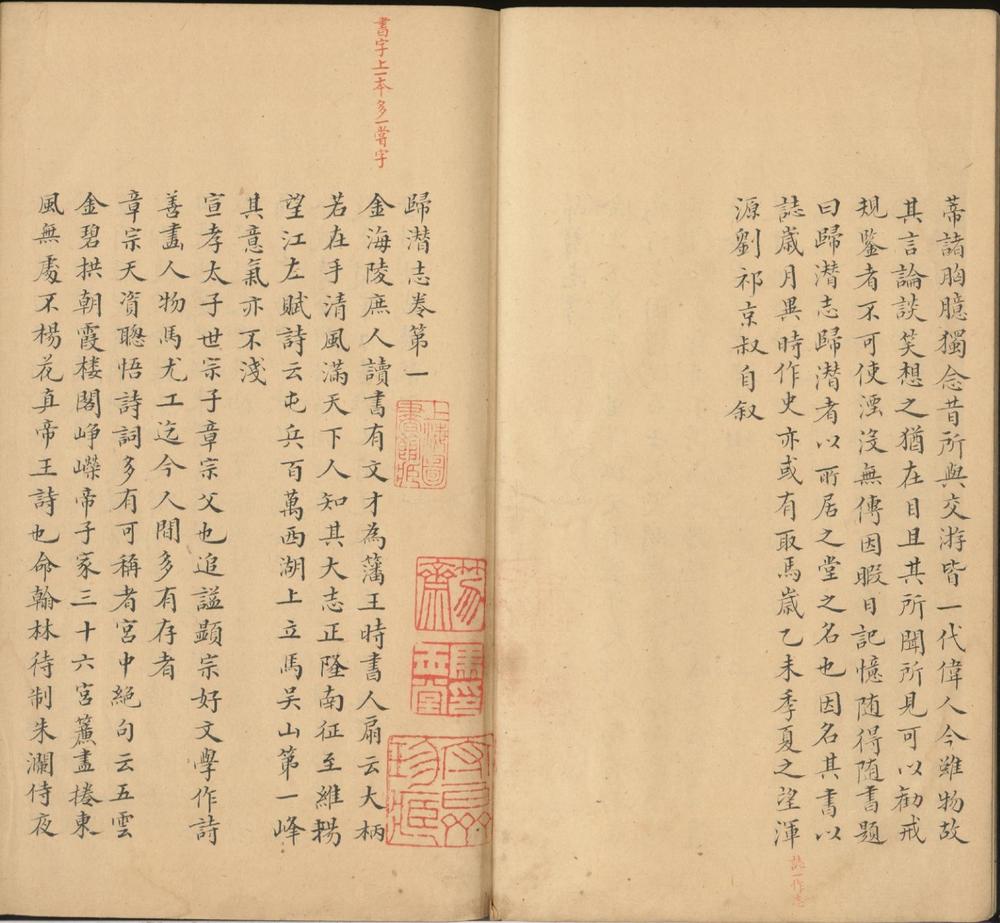 蒂諸胸臆獨念昔所與交游皆一代偉人今雖物故
其言論談笑想之猶在目且其所聞所見可以勸戒
規鑒者不可使湮没無傳因暇日記憶随得随書題
曰歸潜志歸潜者以所居之堂之名也因名其書以
誌歲月異時作史亦或有取焉歲乙未季夏之望渾
誌一作志
源劉祁京叔自叙
書字上一本多一嘗字
歸潜志卷第一
上海圖書館藏
金海陵庶人讀書有文才為藩王時書人扇云大柄
若在手清風滿天下人知其大志正隆南征至維揚
望江左賦詩云屯兵百萬西湖上立馬吴山第一峰
其意氣亦不淺
宣孝太子世宗子章宗父也追謚顯宗好文學作詩
善畫人物馬尤工迄今人間多有存者
章宗天資聰悟詩詞多有可稱者宮中絕句云五雲
金碧拱朝霞樓閣崢嶸帝子家三十六宮簾盡捲東
風無處不楊花真帝王詩也命翰林待制朱瀾侍夜